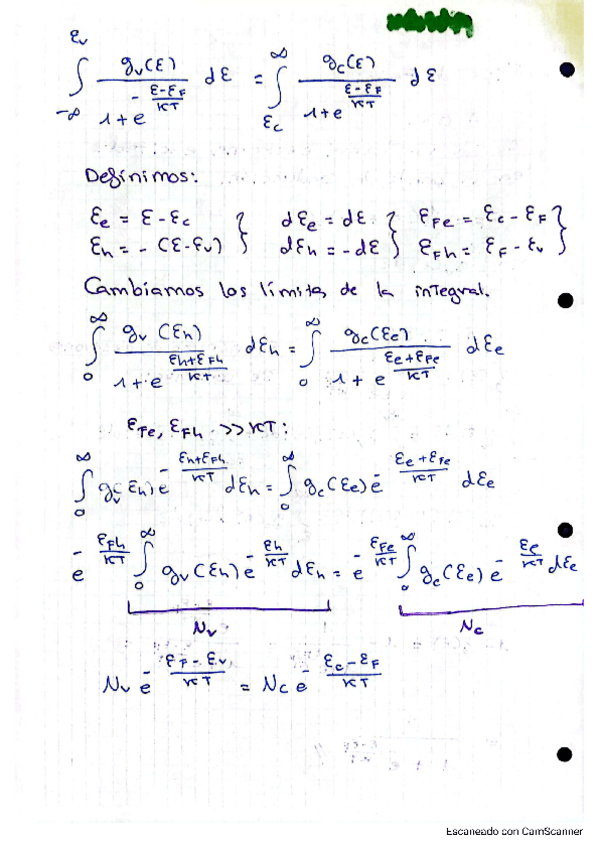 ∫_{-∞}^{εv} gv(ε) / (1+e^{-(ε-εF)/KT}) dε = ∫_{εc}^{∞} gc(ε) / (1+e^{(ε-εF)/KT}) dε
Definimos:
εe = ε-εc } dεe = dε } εFe = εc - εF }
εh = -(ε-εv) } dεh = -dε } εFh = εF - εv }
Cambiamos los límites de la integral.
∫_0^∞ gv(εh) / (1+e^{(εh+εFh)/KT}) dεh = ∫_0^∞ gc(εe) / (1+e^{(εe+εFe)/KT}) dεe
εFe, εFh >> KT:
∫_0^∞ gv(εh) e^{-(εh+εFh)/KT} dεh = ∫_0^∞ gc(εe) e^{-(εe+εFe)/KT} dεe
e^{-εFh/KT} ∫_0^∞ gv(εh) e^{-εh/KT} dεh = e^{-εFe/KT} ∫_0^∞ gc(εe) e^{-εe/KT} dεe
Nv Nc
Nv e^{-(εF-εv)/KT} = Nc e^{-(εc-εF)/KT}
Escaneado con CamScanner